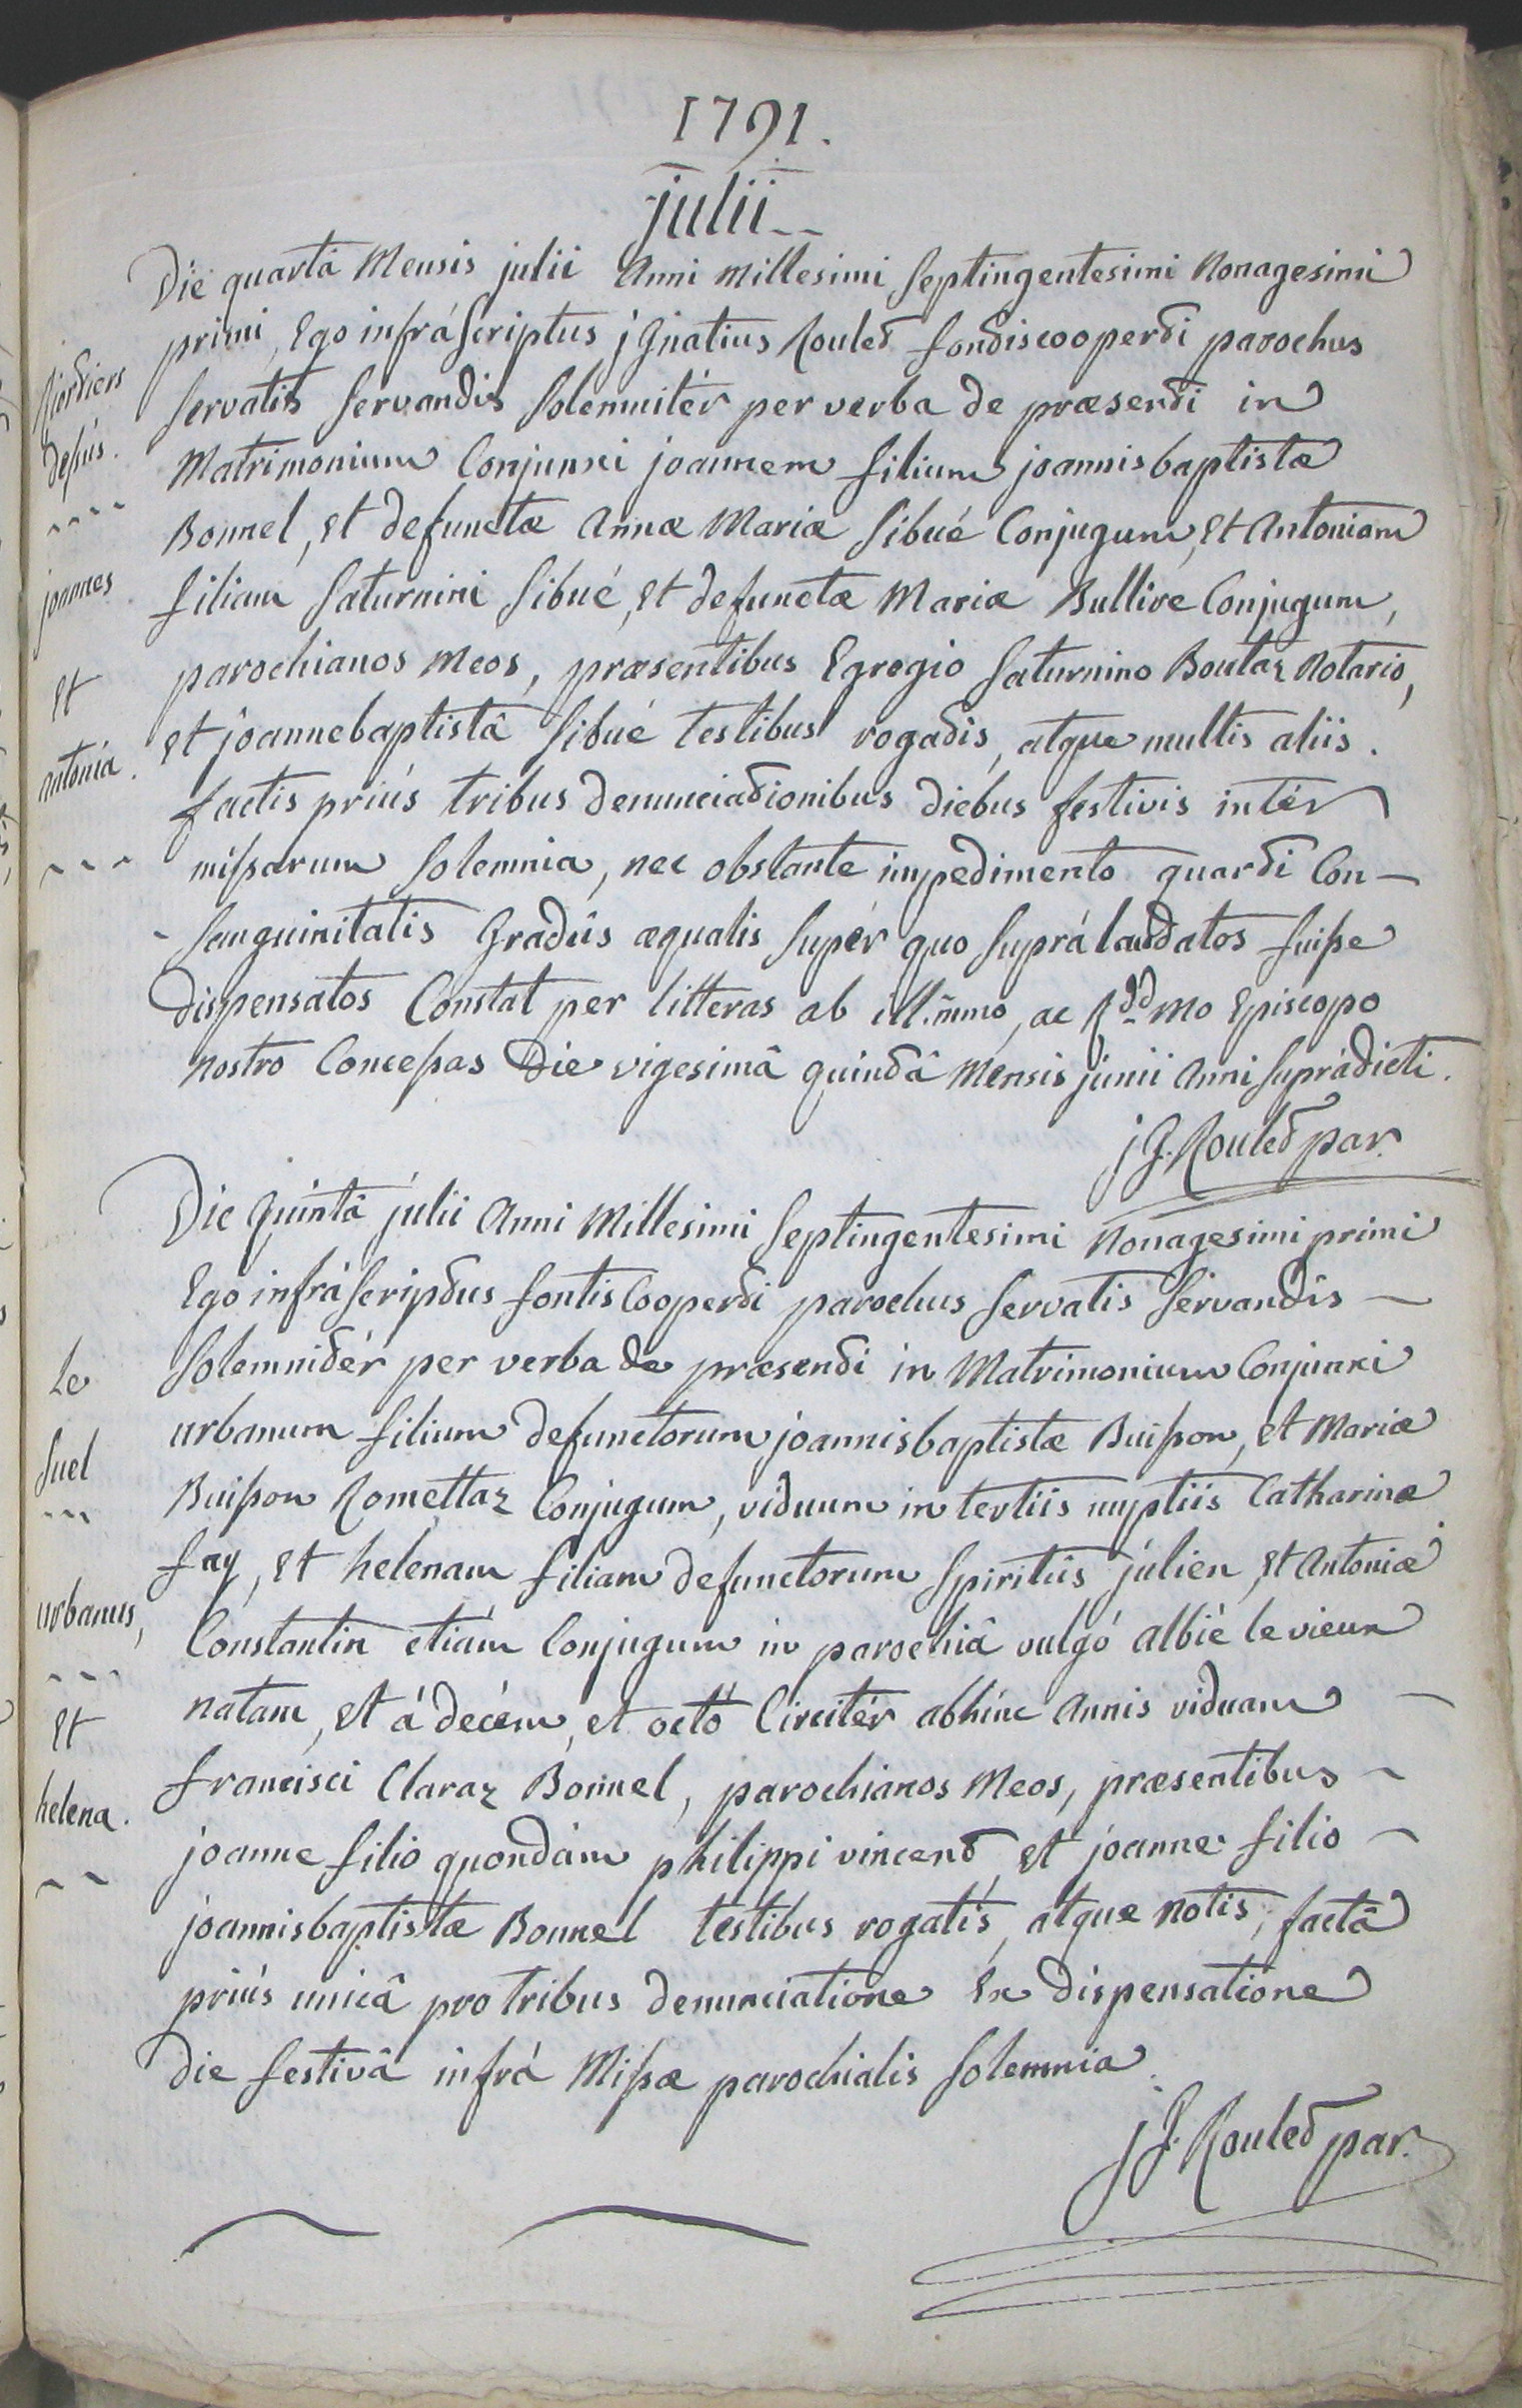 1791.
julii
Die quartâ Mensis julii Anni Millesimi Septingentesimi Nonagesimi
primi, Ego infrá Scriptus jGnatius Roulet fontiscooperti parochus
Servatis Servandis Solemnitér per verba de præsenti in
Matrimonium Conjunxi joannem filium joannisbaptistæ
Bonnel, et defunctæ Annæ Mariæ Sibué Conjugum, et Antoniam
filiam Saturnini Sibué, et defunctæ Mariæ Rullire Conjugum,
parochianos Meos, præsentibus Egregio Saturnino Boutaz Notario,
et joannebaptistâ Sibué testibus rogatis, atque multis aliis.
factis priús tribus denunciationibus diebus festivis intér
missarum Solemnia, nec obstante impedimento quarti Con-
-Sanguinitatis Gradûs æqualis Supér quo Suprá laudatos fuisse
dispensatos Constat per litteras ab ill.mmo, ac Rdd mo Episcopo
nostro Concessas Die vigesimâ quintâ Mensis junii Anni Suprádicti.
jG. Roulet par.
joannes
et
antonia.
Die Quintâ julii Anni Millesimi Septingentesimi Nonagesimi primi
Ego infrá Scriptus fontis Cooperti parochus Servatis Servandis
Solemnitér per verba de præsenti in Matrimonium Conjunxi
urbanum filium defunctorum joannisbaptistæ Buisson, et Mariæ
Buisson Romettaz Conjugum, viduum in tertiis nuptiis Catharinæ
fay, et helenam filiam defunctorum Spiritûs julien, et Antoniæ
Constantin etiám Conjugum in parochiâ vulgó albié le vieux
natam, et á decém, et octó Circitér abhinc Annis viduam
francisci Claraz Bonnel, parochianos Meos, præsentibus
joanne filio quondám philippi vincent, et joanne filio
joannisbaptistæ Bonnel testibus rogatis, atque notis, factâ
priús unicâ pro tribus denunciatione Ex dispensatione
die festivâ infrá Missæ parochialis Solemnia.
jG. Roulet par.
Le
Suel
urbanus,
et
helena.